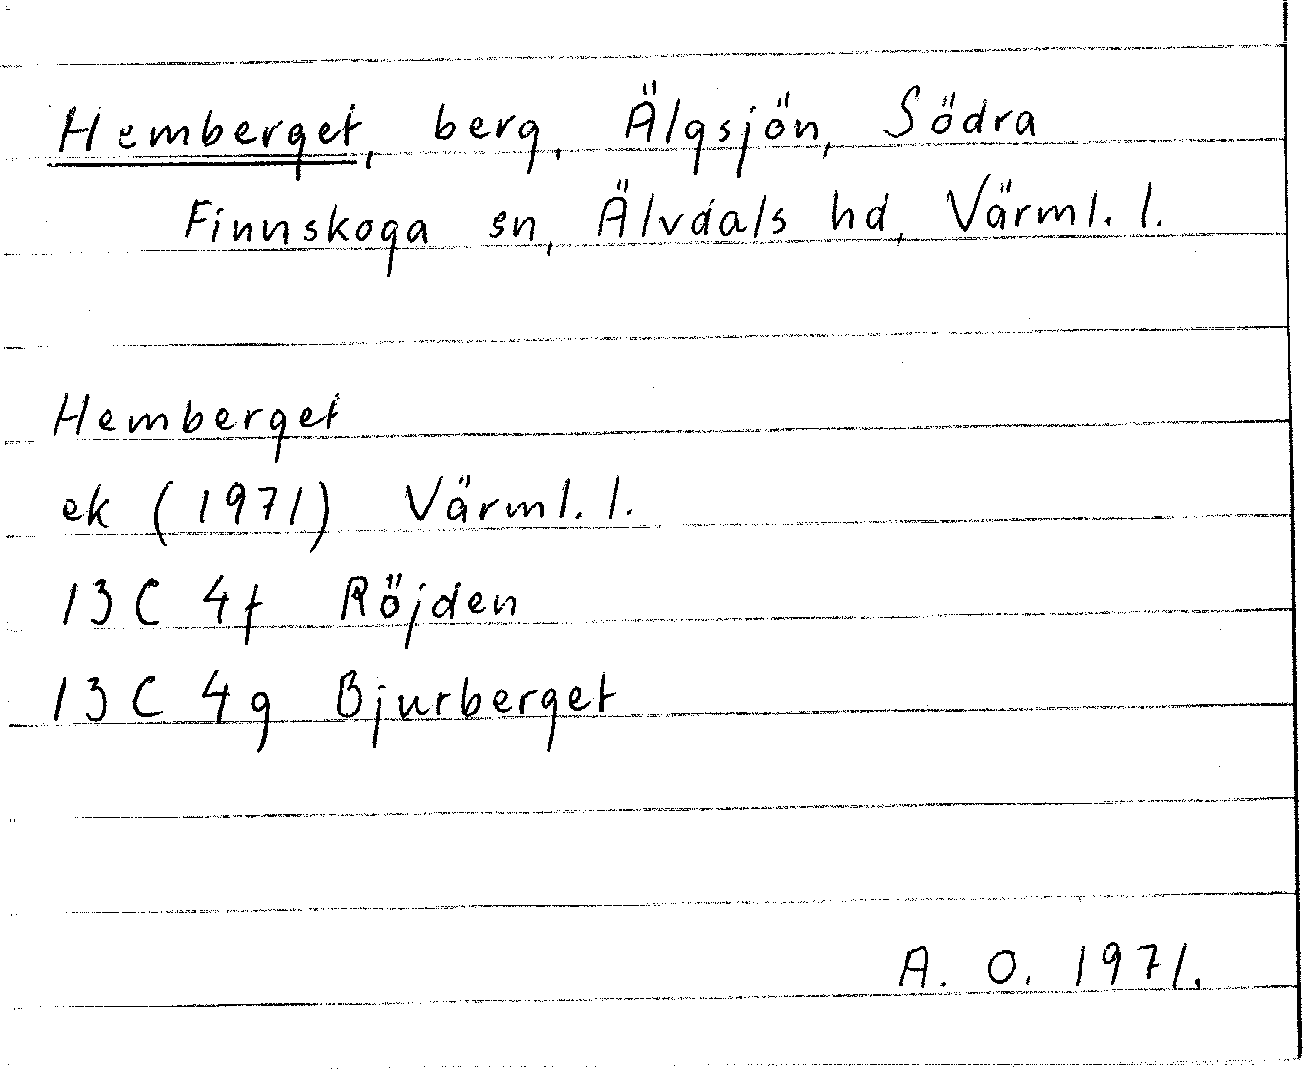 Hemberget, berg, Älgsjön, Södra
Finnskoga sn, Älvdals hd, Värml. l.
Hemberget
ek (1971) Värml. l.
13 C 4f Röjden
13 C 4g Bjurberget
A. O. 1971.